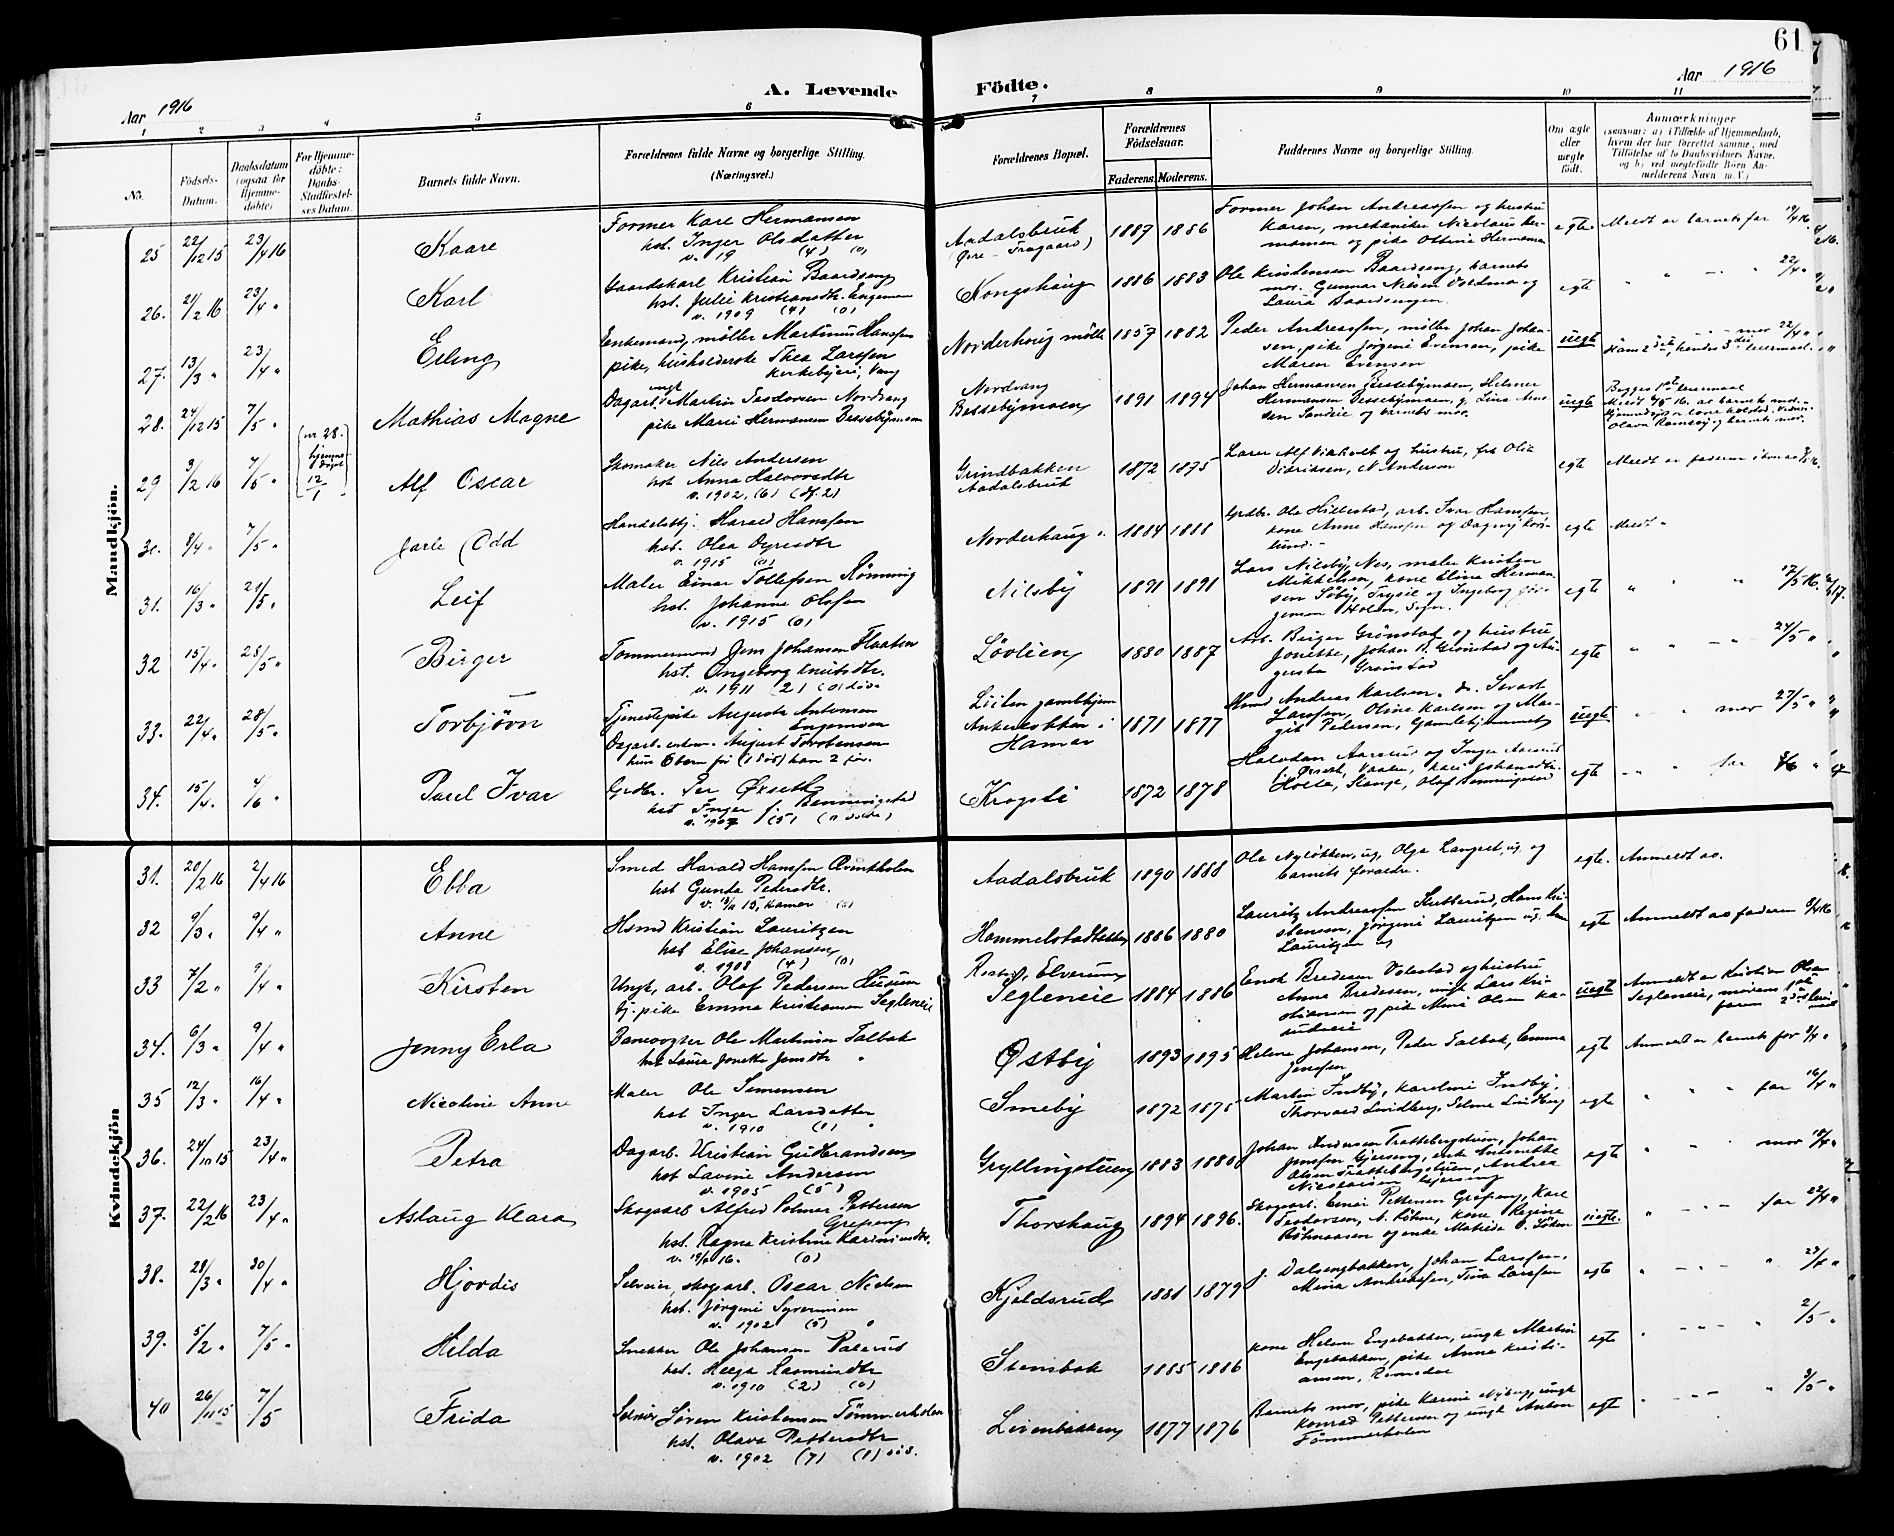 61
Aar 1916
A. Levende Födte.
Aar 1916
1 2 3 4 5 6 7 8 9 10 11
No.
Födsels-Datum.
Daabsdatum (ogsaa for Hjemme-døbte)
For Hjemme-døbte: Daabs-Stadfæstel-ses Datum.
Barnets fulde Navn.
Forældrenes fulde Navne og borgerlige Stilling.
(Næringsvei.)
Forældrenes Bopæl.
Forældrenes Födselsaar.
Faderens. Moderens.
Faddernes Navne og borgerlige Stilling.
Om ægte eller uægte født.
Anmærkninger
(saasom: a) i Tilfælde af Hjemmedaab, hvem der har forrettet samme, med Tilföielse af to Daabsvidners Navne, og b) ved uegtefödte Börn An-melderens Navn m. V.)
Mandkjön.
25 22/12 15 23/4 16 Kaare
Former Kare Hermansen
hst. Inger Olsdatter
v. 19 (4) (0)
Aadalsbruk 1887 1886
Former Johan Andreassen og hustru
Karen, mekaniker Nicolaus Her-
mansen og pike Ottine Hermansen
egte. Meldt av barnets far 19/4 16.
26. 21/2 16 23/4 " Karl
Gaardskarl Kristian Baardseng
hst. Julie Kristiansdtr. Engemoen
v. 1909 (4) (0)
Kongshaug 1886 1883
Ole Kristensen Baardseng, barnets
mor. Gunnar Nilsen Voldmo og
Laura Baardsengen.
egte " 22/4 "
27. 13/3 " 23/4 " Erling
Enkemand, møller Martinus Hanssen
pike, husholderske Thea Larssen
Kirkebyeie, Vang
Norderhoug mølle 1857 1882
Peder Andreassen, møller Johan Johan-
sen, pike Jørgine Evensen, pike
Maren Evensen
uegte mor 22/4 "
Hans 2det, hendes 3die leiermaal.
28. 24/12 15 7/5 " Mathias Magne
Dagarb. ungk. Martin Teodorsen Nordvang
pike Marie Hermansen Bessebymoen
Nordvang
Bessebymoen 1891 1894
Johan Hermansen Bessebymoen, Helmer
Hermansen Bessebymoen, g. Lina
og barnets mor.
uegte Begges 1ste leiermaal
(nr 28. hjemme-døpt 12/1)
29 3/2 16 7/5 " Alf Oscar
Skomaker Nils Andersen
hst. Anna Halvorsdtr
v. 1902. (6) (df. 2)
Grindbakken
Aadalsbruk 1872 1875
Lærer Alf og hustru, frk Olia
Didriksen, N. Andersen
egte Meldt av faderen
30. 8/4 " 7/5 " Jarle Odd
Handelsbj. Harald Hanssen
hst. Olea Dyresdtr
v. 1915 (0)
Norderhaug 1884 1888
Grdbr. Ole Hillestad, arb. Ivar Hanssen,
kone Anne Hanssen og Dagny
egte Meldt "
31. 16/3 " 21/5 " Leif
Maler Einar Tollefsen Rønning
hst. Johanne Olsen
v. 1915 (0)
Nilsby 1891 1891
Lars Nilsby, Nes, maler Kristian
Mikkelsen, kone Elina Herman-
sen Søby, Trysil og Ingeborg Jør-
gensen Holen,
egte " " " 17/5 16.
32 15/4 " 28/5 " Birger
Tømmermand Jens Johansen Flaaten
hst. Ingeborg Knutsdtr.
v. 1911 (2) (0)
Løvlien 1880 1887
Arb. Birger Grønstad og hustru
Jonette, Johan B. Grønstad og Au-
gusta Grønstad
egte " " - " 24/5 "
33. 22/4 " 28/5 " Torbjørn
Tjenestepike Augusta Antonsen
Engemoen
Dagarb. enkem. August Torstensen
Ankerløkken i
Hamar 1871 1877
Andreas Karlsen, do. Sevart
Larssen, Oline Karlsen og Mar-
git Pedersen, Gamlehjemmet
uegte " " mor 27/5 "
34. 15/4 " 4/6 " Paul Ivar
Grdbr. Per Ørseth
hst. Inger f. Benningstad
v. 1907 (5)
Krogsti 1872 1878
Halvdan Aaserud og Inger Aaserud
Ørseth, Vaaler, Kari Johansdtr
Holte, Stange, Olaf Benningstad
egte " " far
Kvindekjön
31. 20/2 16 2/4 16 Ebba
Smed Harald Hanssen Qvintholm
hst Gunda Pedersdtr.
v. 15, Hamar (0)
Aadalsbruk 1890 1888
Ole Nyløkken, ug, Olga Langset, ug. og
barnets foreldre.
egte. Anmeldt av.
32 9/3 " 9/4 " Anne
Hsmd Kristian Lauritzen
hst. Elise Johansen
v. 1908 (4) (0)
Hommelstadbakken 1886 1880
Lauritz Andreassen Skutterud, Hans Kri-
stensen, Jørgine Lauritzen ug.
Lauritzen ug
egte Anmeldt av faderen 9/4 16
33 7/2 " 9/4 " Kirsten
Ungk, arb. Olaf Pedersen Husum
tj. pike Emma Kristiansen Segleneie
Elverum
Segleneie 1884 1886
Enok Bredesen Volestad og hustru
Anna Bredesen, ungk Lars Kri-
stiansen og pike Mina Olsen
uegte Anmeldt av Kristian Olsen
Segleneie, moderens 1ste
faren 2det leiermaal
34. 6/3 " 9/4 " Jenny Erla
Banevogter Ole Martinsen Talbak
hst Laura Jonette Jensdtr "
Østby 1893 1895
Helene Johansen, Peder Talbak, Emma
Jenssen
egte Anmeldt av barnets far 9/4 "
35 12/3 " 16/4 " Nicoline Anne
Maler Ole Simensen
hst Inger Larsdatter
v. 1910 (1) "
Smeby 1872 1875
Martin Indby, Karoline Indby,
Thorvald Lindberg, Selma Lindberg
egte " " " far 16/4 "
36. 24/10 15 23/4 " Petra
Dagarb. Kristian Gudbrandsen
hst Lavine Andersen
v. 1905 (5)
Gryllingstuen 1883 1880
Johan Andersen Trættebergstuen, Johan
Jenssen Gjersing, enke Antonette
Olsen Trættebergstuen, Andrea
Nicolaisen Gjersing
egte " " mor 18/4 "
37. 22/2 16 23/4 " Aslaug Klara
Skogarb. Alfred Polmer Pettersen
Grefseng
hst. Ragna Kristine Kariniusdtr.
v. 16. (0)
Thorshaug 1894 1896.
Skogarb. Einar Pettersen Grefseng, Kare
Teodorsen, A. Løhne, kone Regine
og enke Matilde
uegte. " - - far 22/4 "
38. 28/3 " 30/4 " Hjordis
Selveier, skogarb. Oscar Nielsen
hst. Jørgine Syversen
v. 1902 (5) "
Kjeldsrud 1881 1879
J. Dalsengbakken, Johan Larssen,
Mina Andreassen, Tina Larssen
egte " - - "
39. 5/2 " 7/5 " Hilda
Snekker Ole Johansen Valerud
hst. Helga Rasmusdtr
v. 1910 (2) (0)
Stensbak 1885 1886
Kone Helene Engebakken, ungk Martin
Engebakken, pike Anna Kristi-
ansen,
egte " - - - " 2/5 "
40 26/11 15 7/5 Frida
Selveier Søren Kristensen Tømmerholen
hst. Olava Pettersdtr
v. 1902 (7) (1)
Livenbakken 1877 1876
Barnets mor, pike Karine Nyberg, ungk
Konrad Pettersen og ungk Anton
Tømmerholen
egt " - - - " 3/5 "